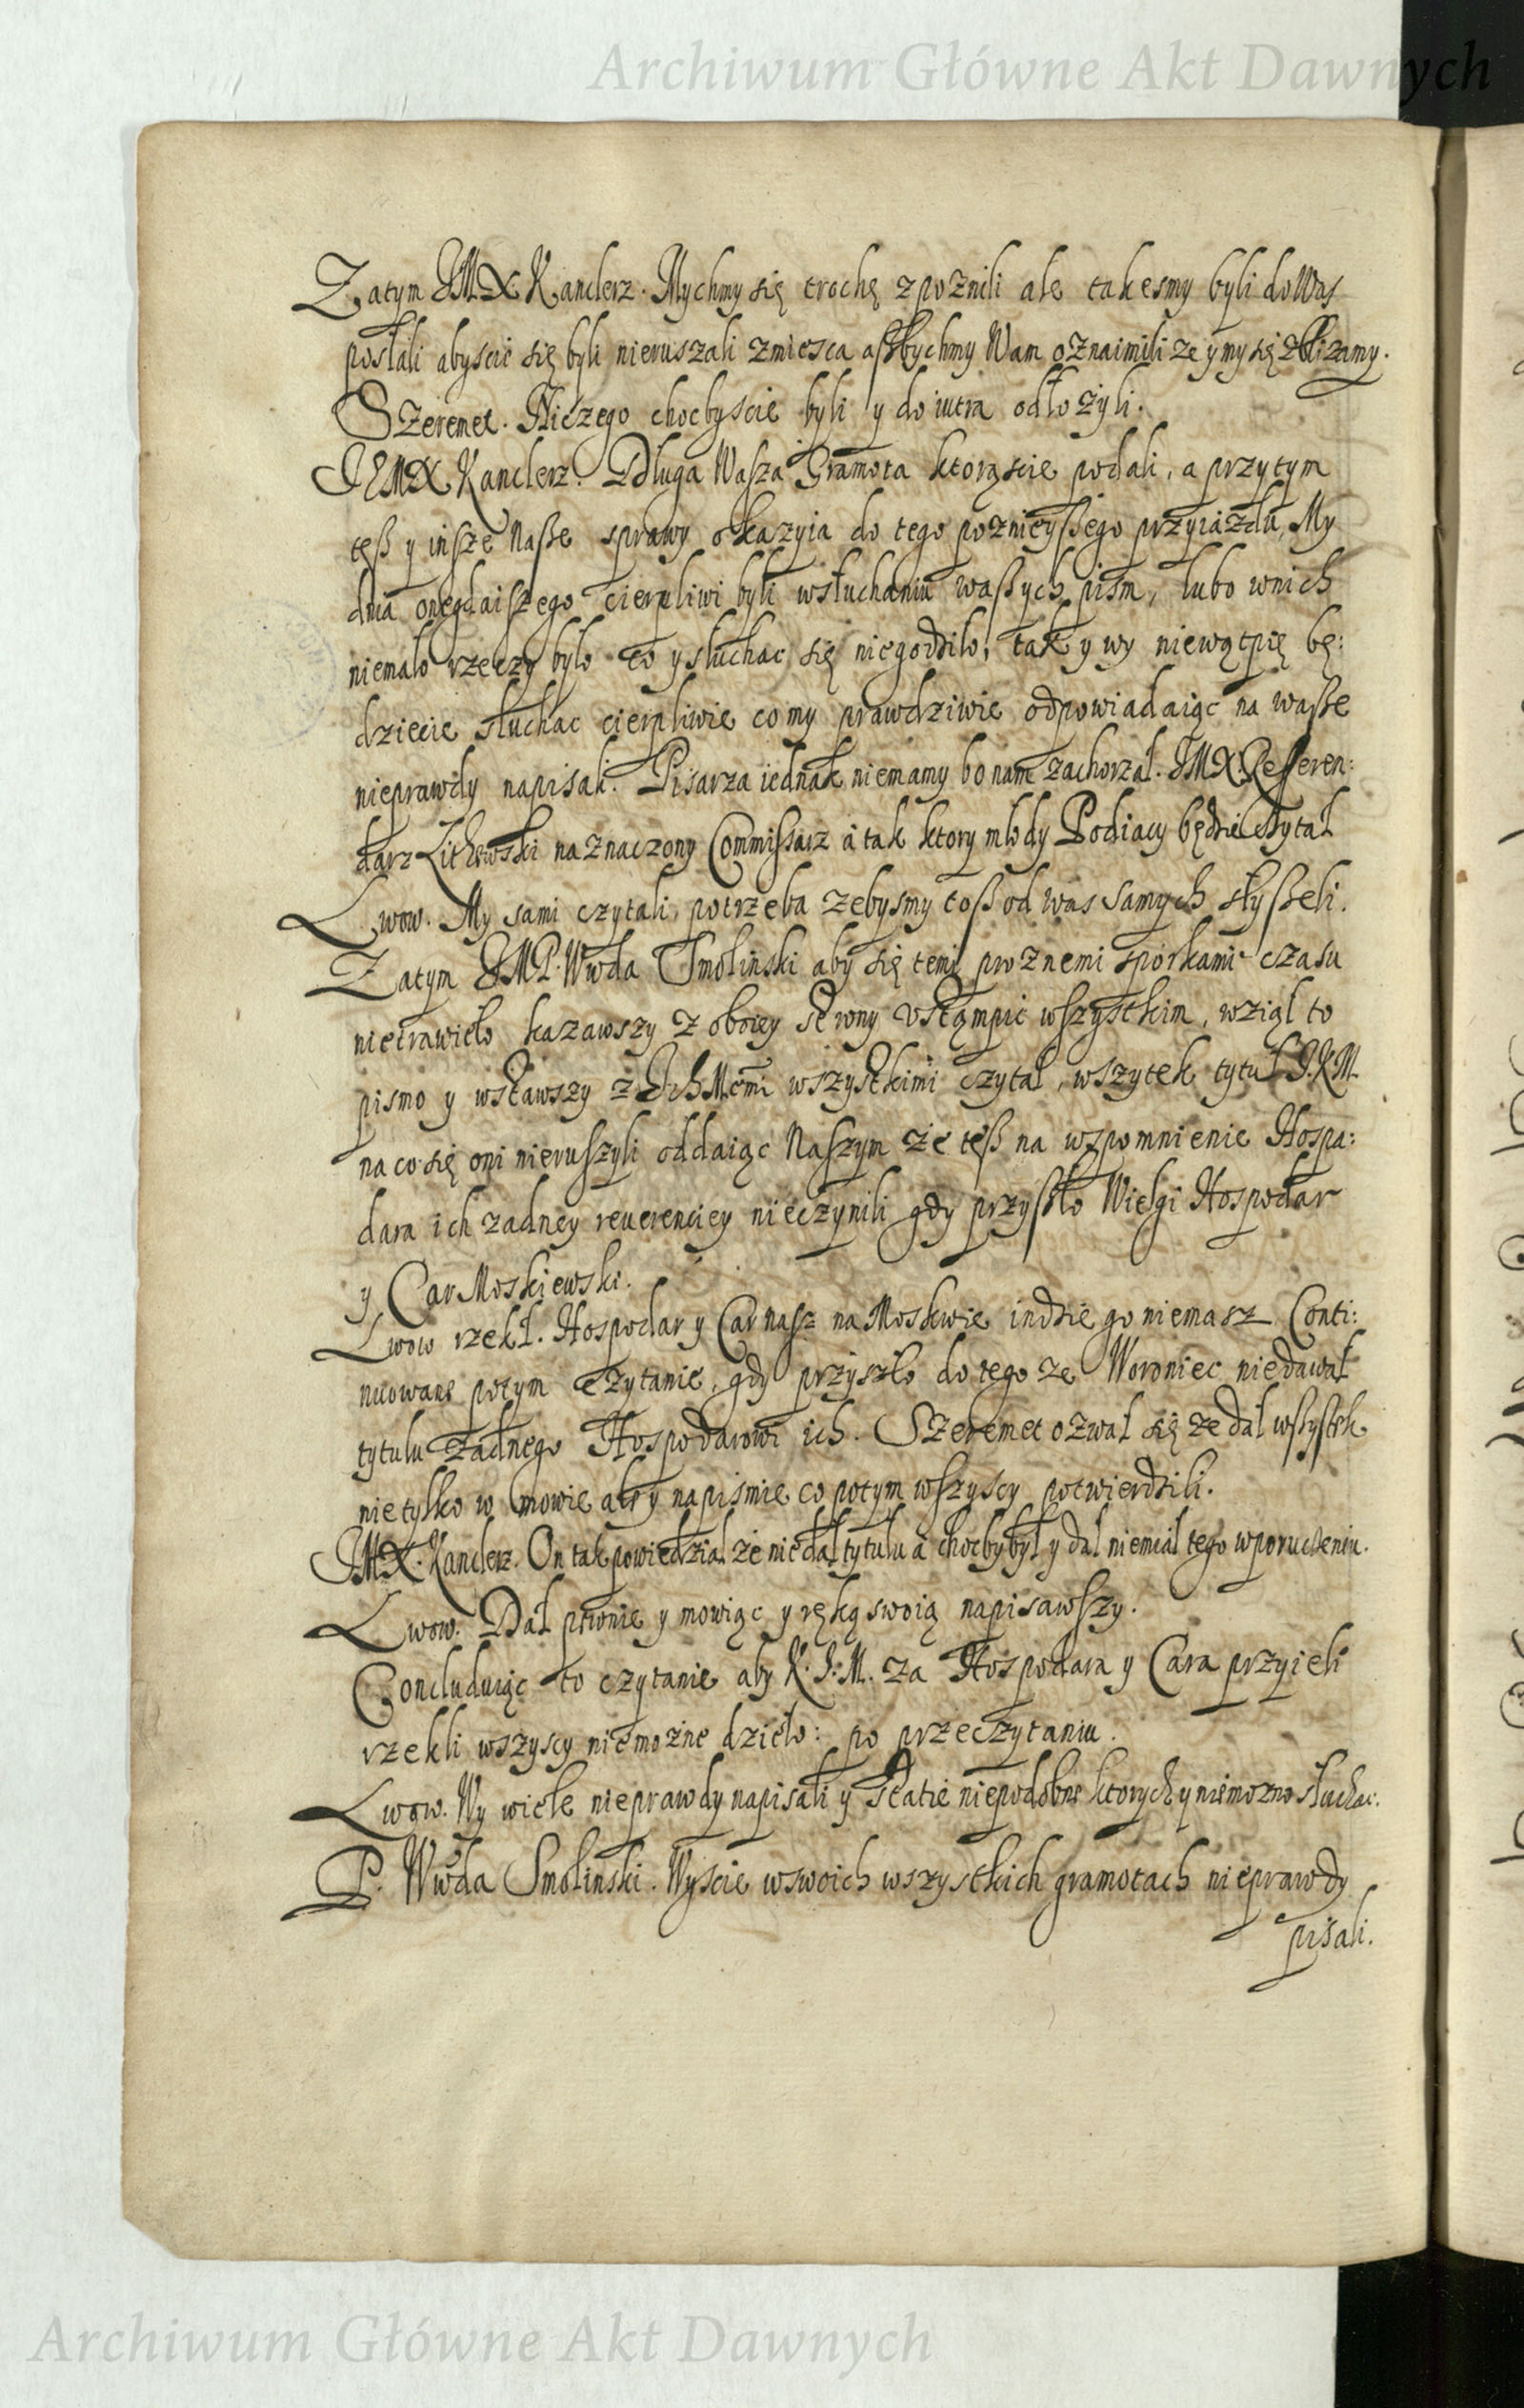 Archiwum Główne Akt Dawnych
Zatym JMX Kanclerz. Mychmy się trochę zpoznili ale takesmy byli do Was
posłali abyscie się byli nieruszali zmiesca aßbychmy Wam oznaimili ze y my się zblizamy.
Szeremet. Niczego chocbyscie byli y do iutra odłozyli.
JEMX Kanclerz. Długa Wasza Gramota ktorąscie podali, a przytym
teß y insze Naße sprawy okazyia do tego poznieyßego przyiazdu, My
dnia onegdaiszego cierpliwi byli wsłuchaniu waßych pism, lubo wnich
niemało rzeczy było co y słuchac się niegodziło, tak y wy niewątpię bę:
dziecie słuchac cierpliwie co my prawdziwie odpowiadaiąc na waße
nieprawdy napisali. Pisarza iednak niemamy bo nam zachorzał. JMX Referen:
darz Lithewski naznaczony Commissarz a tak ktory młody Podiaczy będzie czytał
Lwow. My sami czytali, potrzeba zebysmy toß od was samych słyßeli.
Zatym JMP. Wwda Smolinski aby się temi proznemi sporkami czasu
nietrawieło kazawszy z oboiey strony vstąmpic wszystkim, wziął to
pismo y wstawszy z Ichmcmi wszystkimi czytał, wszytek tytuł J.K.M.
na co się oni nieruszyli oddaiąc Naszym że teß na wzpomnienie Hospa:
dara ich zadney reuerenciey nieczynili gdy przyszło Wielgi Hospodar
y Car Moskiewski.
Lwow rzekł. Hospodar y Car nasz na Moskwie indzie go niemasz. Conti:
nuowane potym czytanie, gdy przyszło do tego ze Woroniec niedawał
tytulu żadnego Hospodarowi ich. Szeremet ozwał się ze dał wszystek
nie tylko w mowie ale y napismie co potym wszyscy potwierdzili.
JMX. Kanclerz. On tak powiedział że niedał tytulu a chocby był y dał niemiał tego wporuczeniu.
Lwow. Dał pewnie y mowiąc y ręką swoią napisawszy.
Concluduiąc to czytanie aby K.J.M. za Hospodara y Cara przyieli
rzekli wszyscy niemożne dzieło: po przeczytaniu.
Lwow. Wy wiele nieprawdy napisali y statie niepodobne ktorych y niemozno słuchac.
P. Wwda Smolinski. Wyscie wswoich wszystkich gramotach nieprawdy
pisali.
Archiwum Główne Akt Dawnych